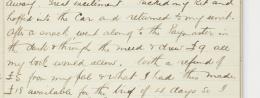 away. Great excitement. Packed my kit and
hopped into the Car and returned to my unit.
After a snack, went along to the Paymaster in
the dark & through the mud & drew £9 all
my book would allow. Got a refund of
£5 from my pal & what I had this made
£18 available for the brief 4 days so I